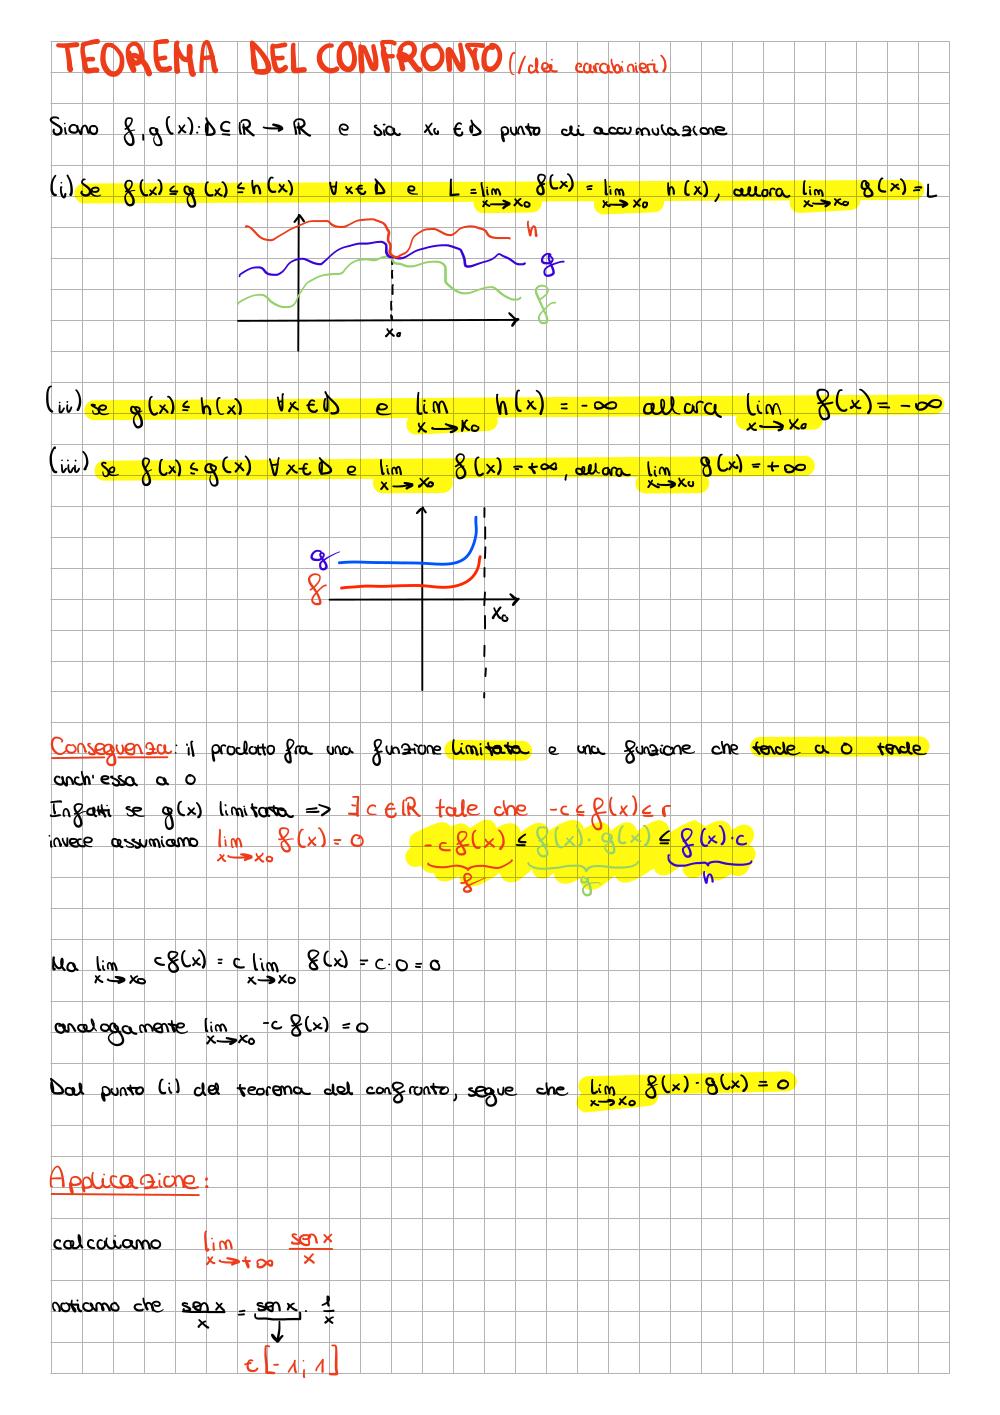 TEOREMA DEL CONFRONTO (/dei carabinieri)
Siano f, g(x): D ⊆ ℝ → ℝ e sia x₀ ∈ D punto di accumulazione
(i) Se f(x) ≤ g(x) ≤ h(x) ∀x ∈ D e L = lim x→x₀ f(x) = lim x→x₀ h(x), allora lim x→x₀ g(x) = L
h
g
f
x₀
(ii) se g(x) ≤ h(x) ∀x ∈ D e lim x→x₀ h(x) = -∞ allora lim x→x₀ f(x) = -∞
(iii) se f(x) ≤ g(x) ∀x ∈ D e lim x→x₀ f(x) = +∞, allora lim x→x₀ g(x) = +∞
g
f
x₀
Conseguenza: il prodotto fra una funzione limitata e una funzione che tende a 0 tende
anch'essa a 0
Infatti se g(x) limitata => ∃ c ∈ ℝ tale che -c ≤ f(x) ≤ r
invece assumiamo lim x→x₀ f(x) = 0 -c f(x) ≤ f(x)·g(x) ≤ f(x)·c
f g h
Ma lim x→x₀ c f(x) = c lim x→x₀ f(x) = c·0 = 0
analogamente lim x→x₀ -c f(x) = 0
Dal punto (i) del teorema del confronto, segue che lim x→x₀ f(x)·g(x) = 0
Applicazione:
calcoliamo lim x→+∞ sen x / x
notiamo che sen x / x = sen x · 1/x
∈ [-1; 1]